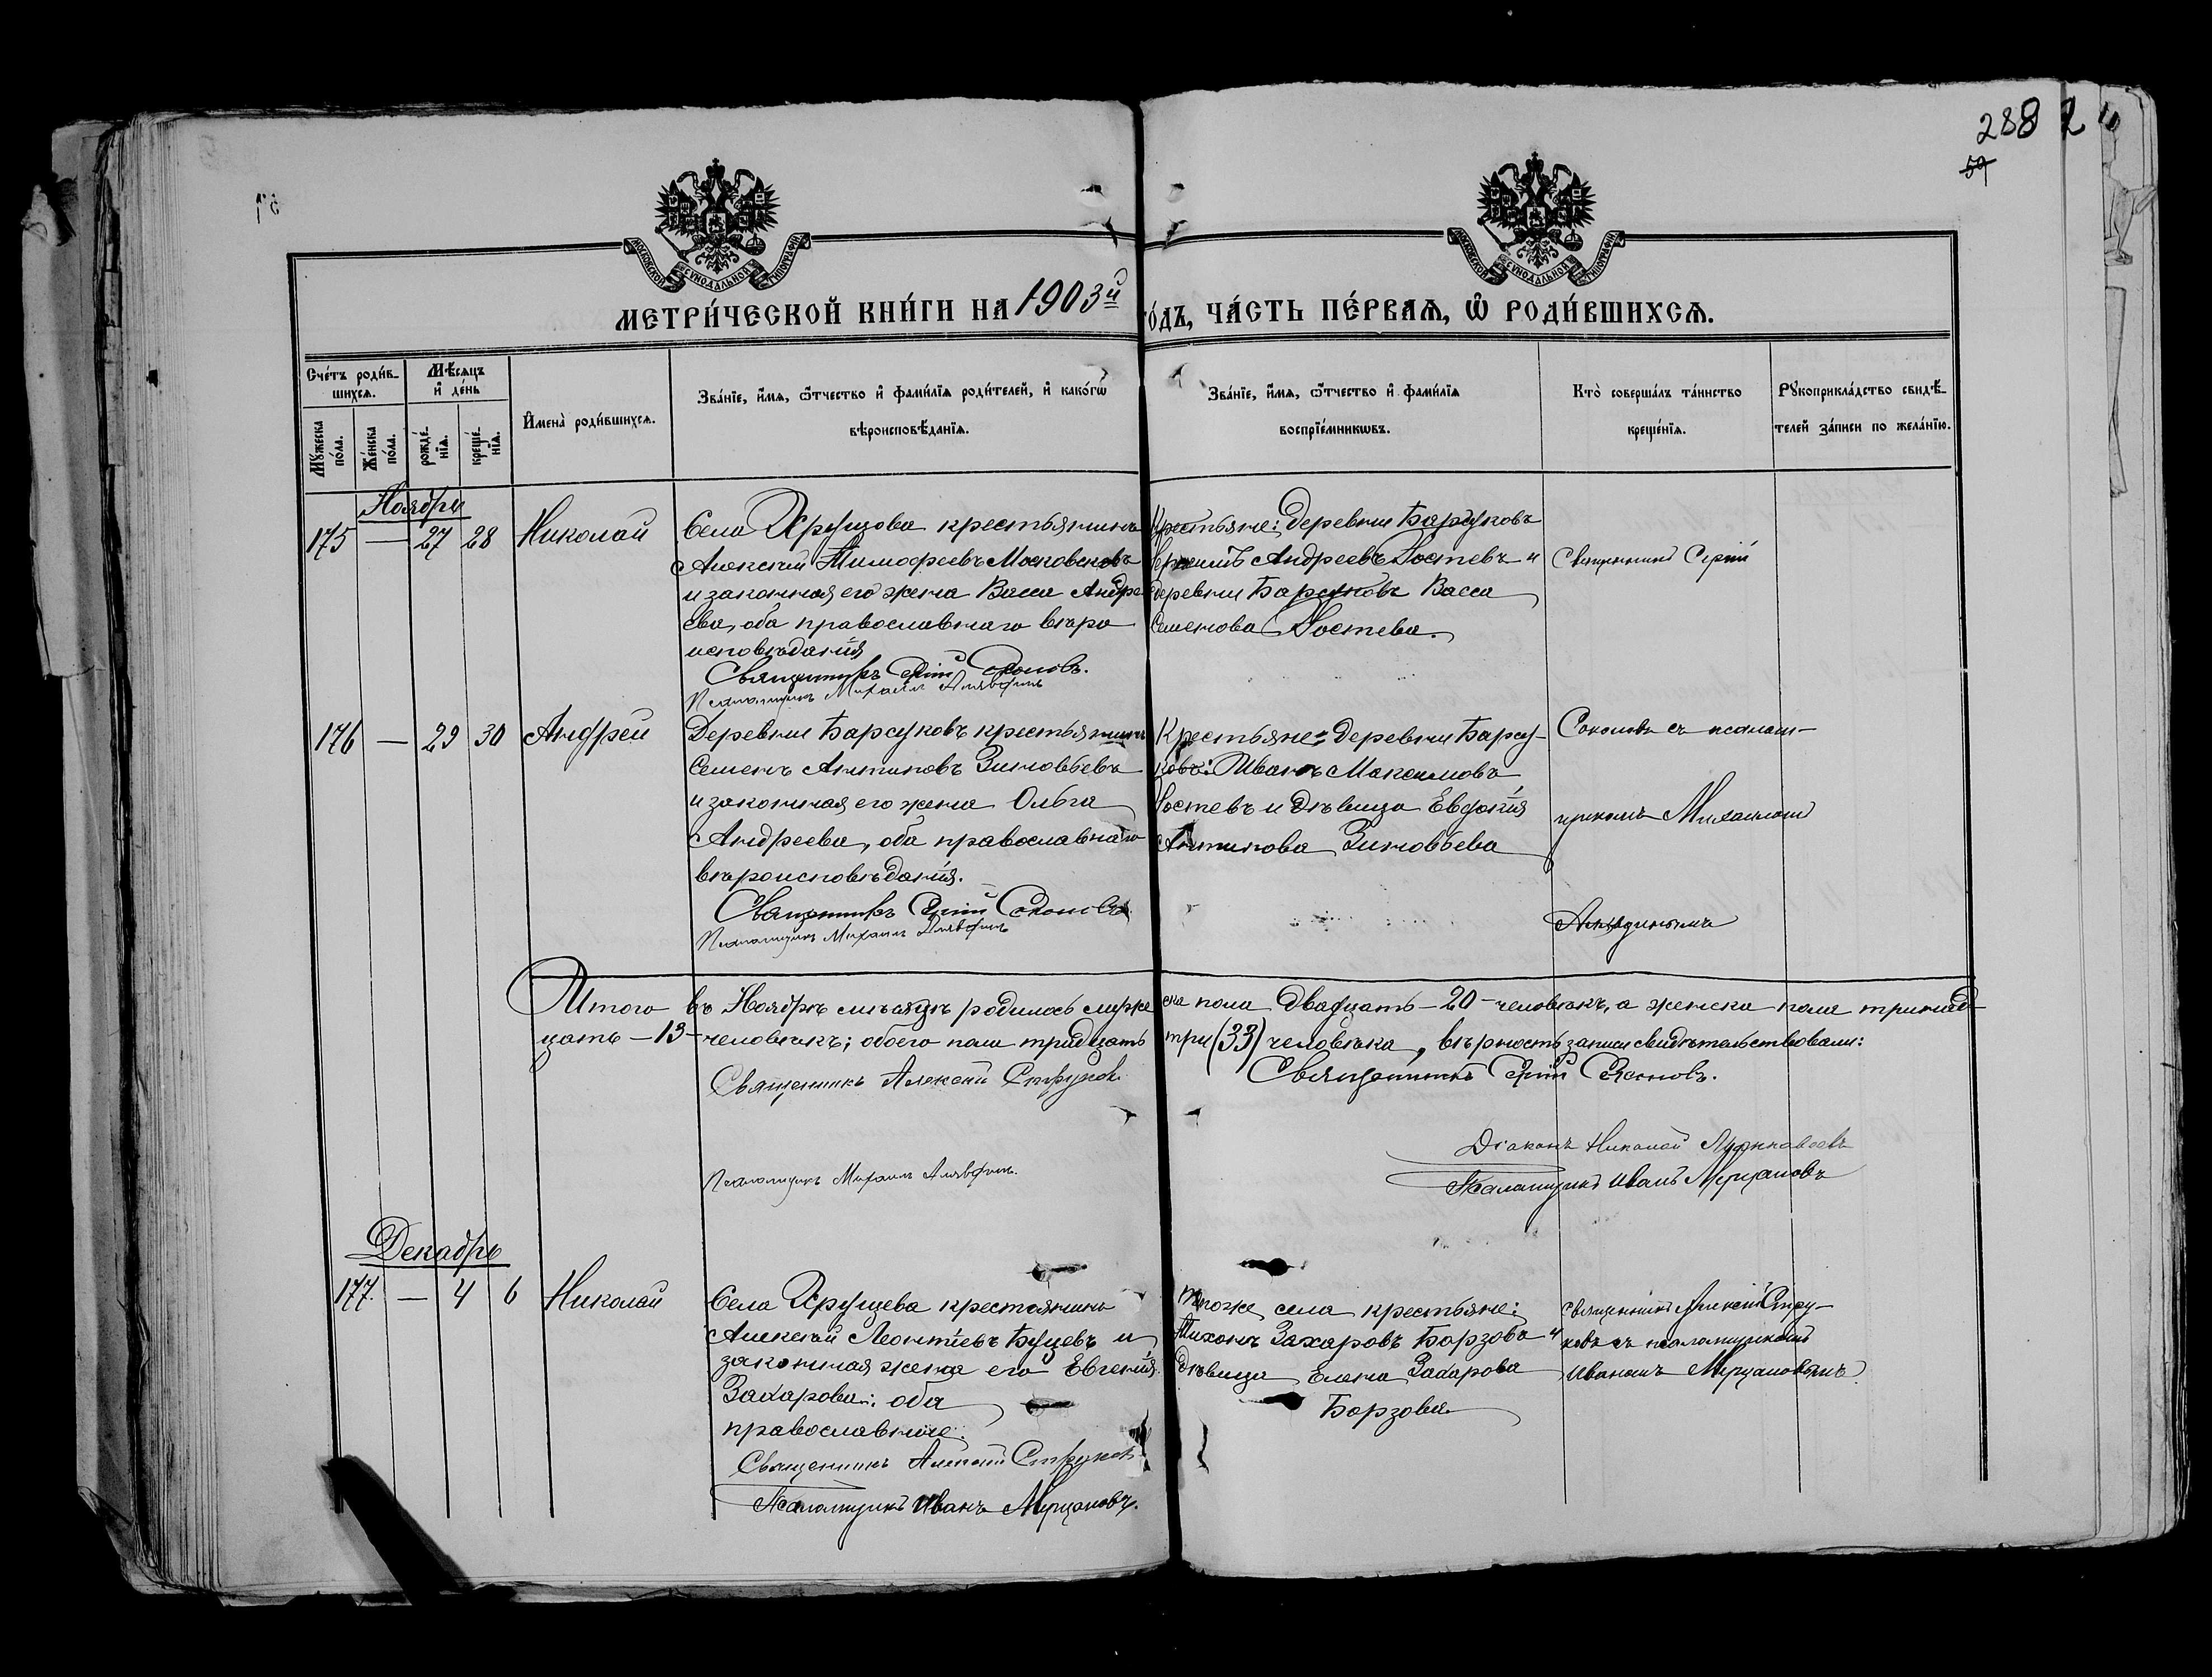 288
59
МОСКОВСКОЙ СѴНОДАЛЬНОЙ ТИПОГРАФІИ
МОСКОВСКОЙ СѴНОДАЛЬНОЙ ТИПОГРАФІИ
МЕТРИ́ЧЕСКОЙ КНИ́ГИ НА 1903й ГО́ДЪ, ЧА́СТЬ ПЕ́РВАѦ, Ѡ҆ РОДИ́ВШИХСѦ.
Сче́тъ роди́в-
шихсѧ.
Мѣ́сѧцъ
и҆ де́нь
Мꙋ́жеска
по́ла.
Же́нска
по́ла.
рожде́-
нїѧ.
креще́-
нїѧ.
И҆мена̀ роди́вшихсѧ.
Зва́нїе, и҆́мѧ, ѻ҆́тчество и҆ фами́лїѧ роди́телей, и҆ како́гѡ
вѣроисповѣ́данїѧ.
Зва́нїе, и҆́мѧ, ѻ҆́тчество и҆ фами́лїѧ
воспрїе́мникѡвъ.
Кто̀ соверша́лъ та́инство
креще́нїѧ.
Рꙋкоприкла́дство свидѣ́-
телей за́писи по жела́нїю.
Ноябрь
175 — 27 28 Николай
Села Хрущова крестьянинъ
Алексѣй Тимофеевъ Московсковъ
и законная его жена Васса Андре
ева, оба православнаго вѣро
исповѣданія
Священникъ Сергій Соколовъ.
Псаломщикъ Михаилъ
Крестьяне: деревни Барсуковъ
Андреевъ Гостевъ и
деревни Барсуковъ Васса
Семенова Гостева.
Священникъ Сергій
176 — 29 30 Андрей
Деревни Барсуковъ крестьянинъ
Семенъ Антиповъ Зиновьевъ
и законная его жена Ольга
Андреева, оба православнаго
вѣроисповѣданія.
Священникъ Сергій Соколовъ
Псаломщикъ Михаилъ
Крестьяне: деревни Барсу-
ковъ: Иванъ Максимовъ
Гостевъ и дѣвица Евдокія
Антипова Зиновьева
Соколовъ съ псалом-
щикомъ Михаиломъ
Итого въ Ноябрѣ мѣсяцѣ родилось муже ска пола двадцать — 20 — человѣкъ, а женска пола тринад-
цать — 13 — человѣкъ; обоего пола тридцать три (33) человѣка, вѣрность записи свидѣтельствовали:
Священникъ Алексѣй Струковъ
Священникъ Сергій Соколовъ.
Діаконъ Николай
Псаломщикъ Михаилъ
Псаломщикъ Иванъ Мерцаловъ
Декабрь
177. — 4 6 Николай
Села Хрущева крестьянинъ
Алексѣй Леонтіевъ Буцевъ и
законная жена его Евгенія
Захарова: оба
православные.
Священникъ Алексѣй Струковъ
Псаломщикъ Иванъ Мерцаловъ.
Тогоже села крестьяне:
Тихонъ Захаровъ Борзовъ и
дѣвица Елена Захарова
Борзова
Священникъ Алексѣй Стру-
ковъ съ псаломщикомъ
Иваномъ Мерцаловымъ